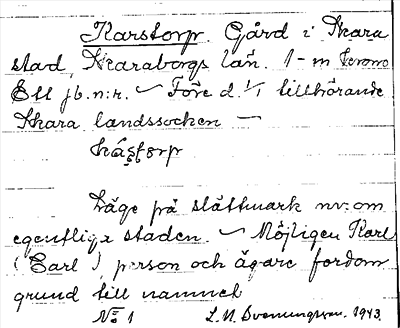 Karstorp. Gård i Skara
stad, Skaraborgs län. 1-m
Ett jb.n:r. ~ Före d. 1/1 tillhörande
Skara landssocken —
Kástorp
Läge på slättmark nv. om
egentliga staden. ~ Möjligen Karl
(Carl), person och ägare fordom
grund till namnet
No 1 L.N. 1943.